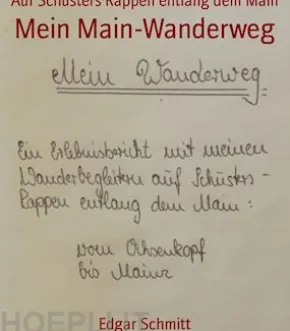 Auf Schusters Rappen entlang dem Main
Mein Main-Wanderweg
Mein Wanderweg
Ein Erlebnisbericht mit meinen
Wanderbegleitern auf Schusters-
Rappen entlang dem Main:
vom Ochsenkopf
bis Mainz
HOEPLI.IT
Edgar Schmitt